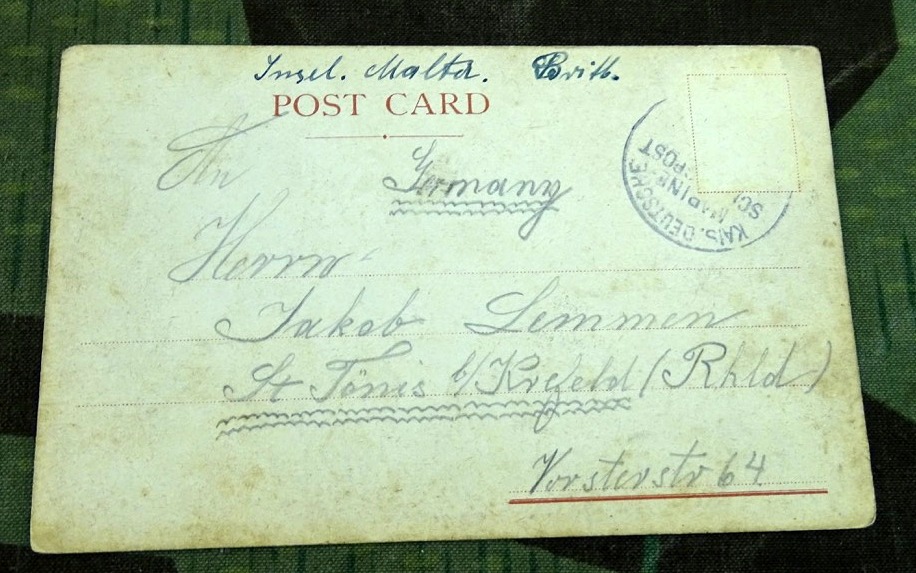 Insel. Malta. Britt.
POST CARD
An
Germany
Herrn
Jakob Lemmen
St Tönis b/Krefeld (Rhld)
Vorsterstr 64
KAIS. DEUTSCHE
MARINE
POST